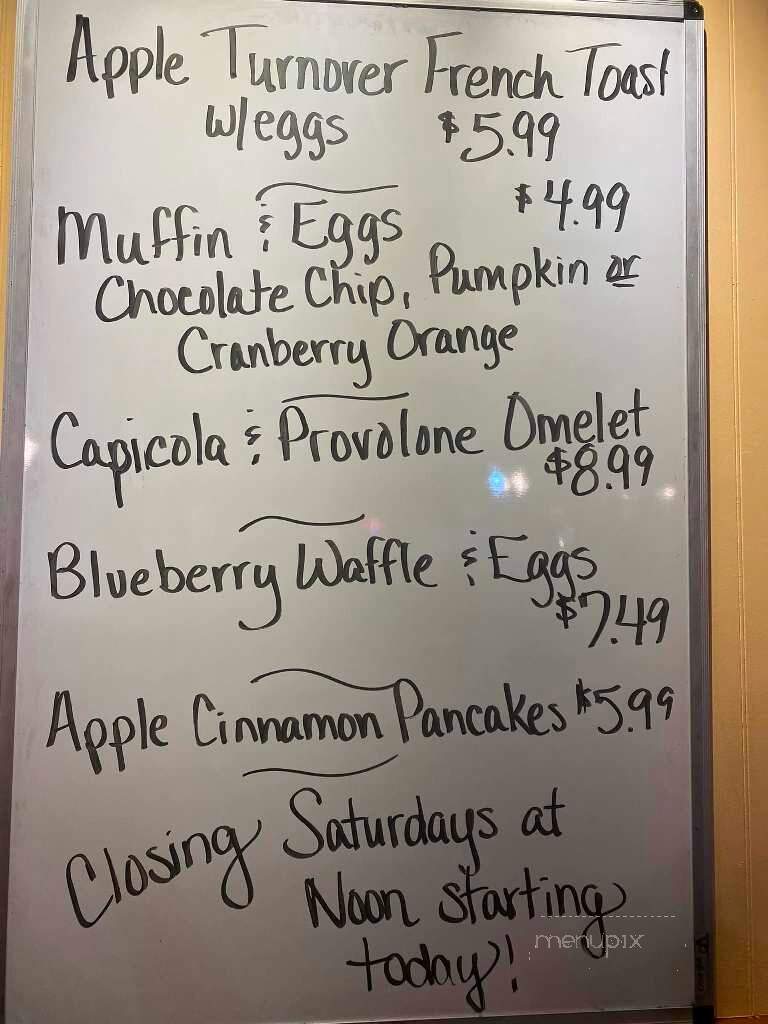 Apple Turnover French Toast
w/eggs $5.99
Muffin & Eggs $4.99
Chocolate Chip, Pumpkin or
Cranberry Orange
Capicola & Provolone Omelet
$8.99
Blueberry Waffle & Eggs
$7.49
Apple Cinnamon Pancakes $5.99
Closing Saturdays at
Noon starting
today!
menupix